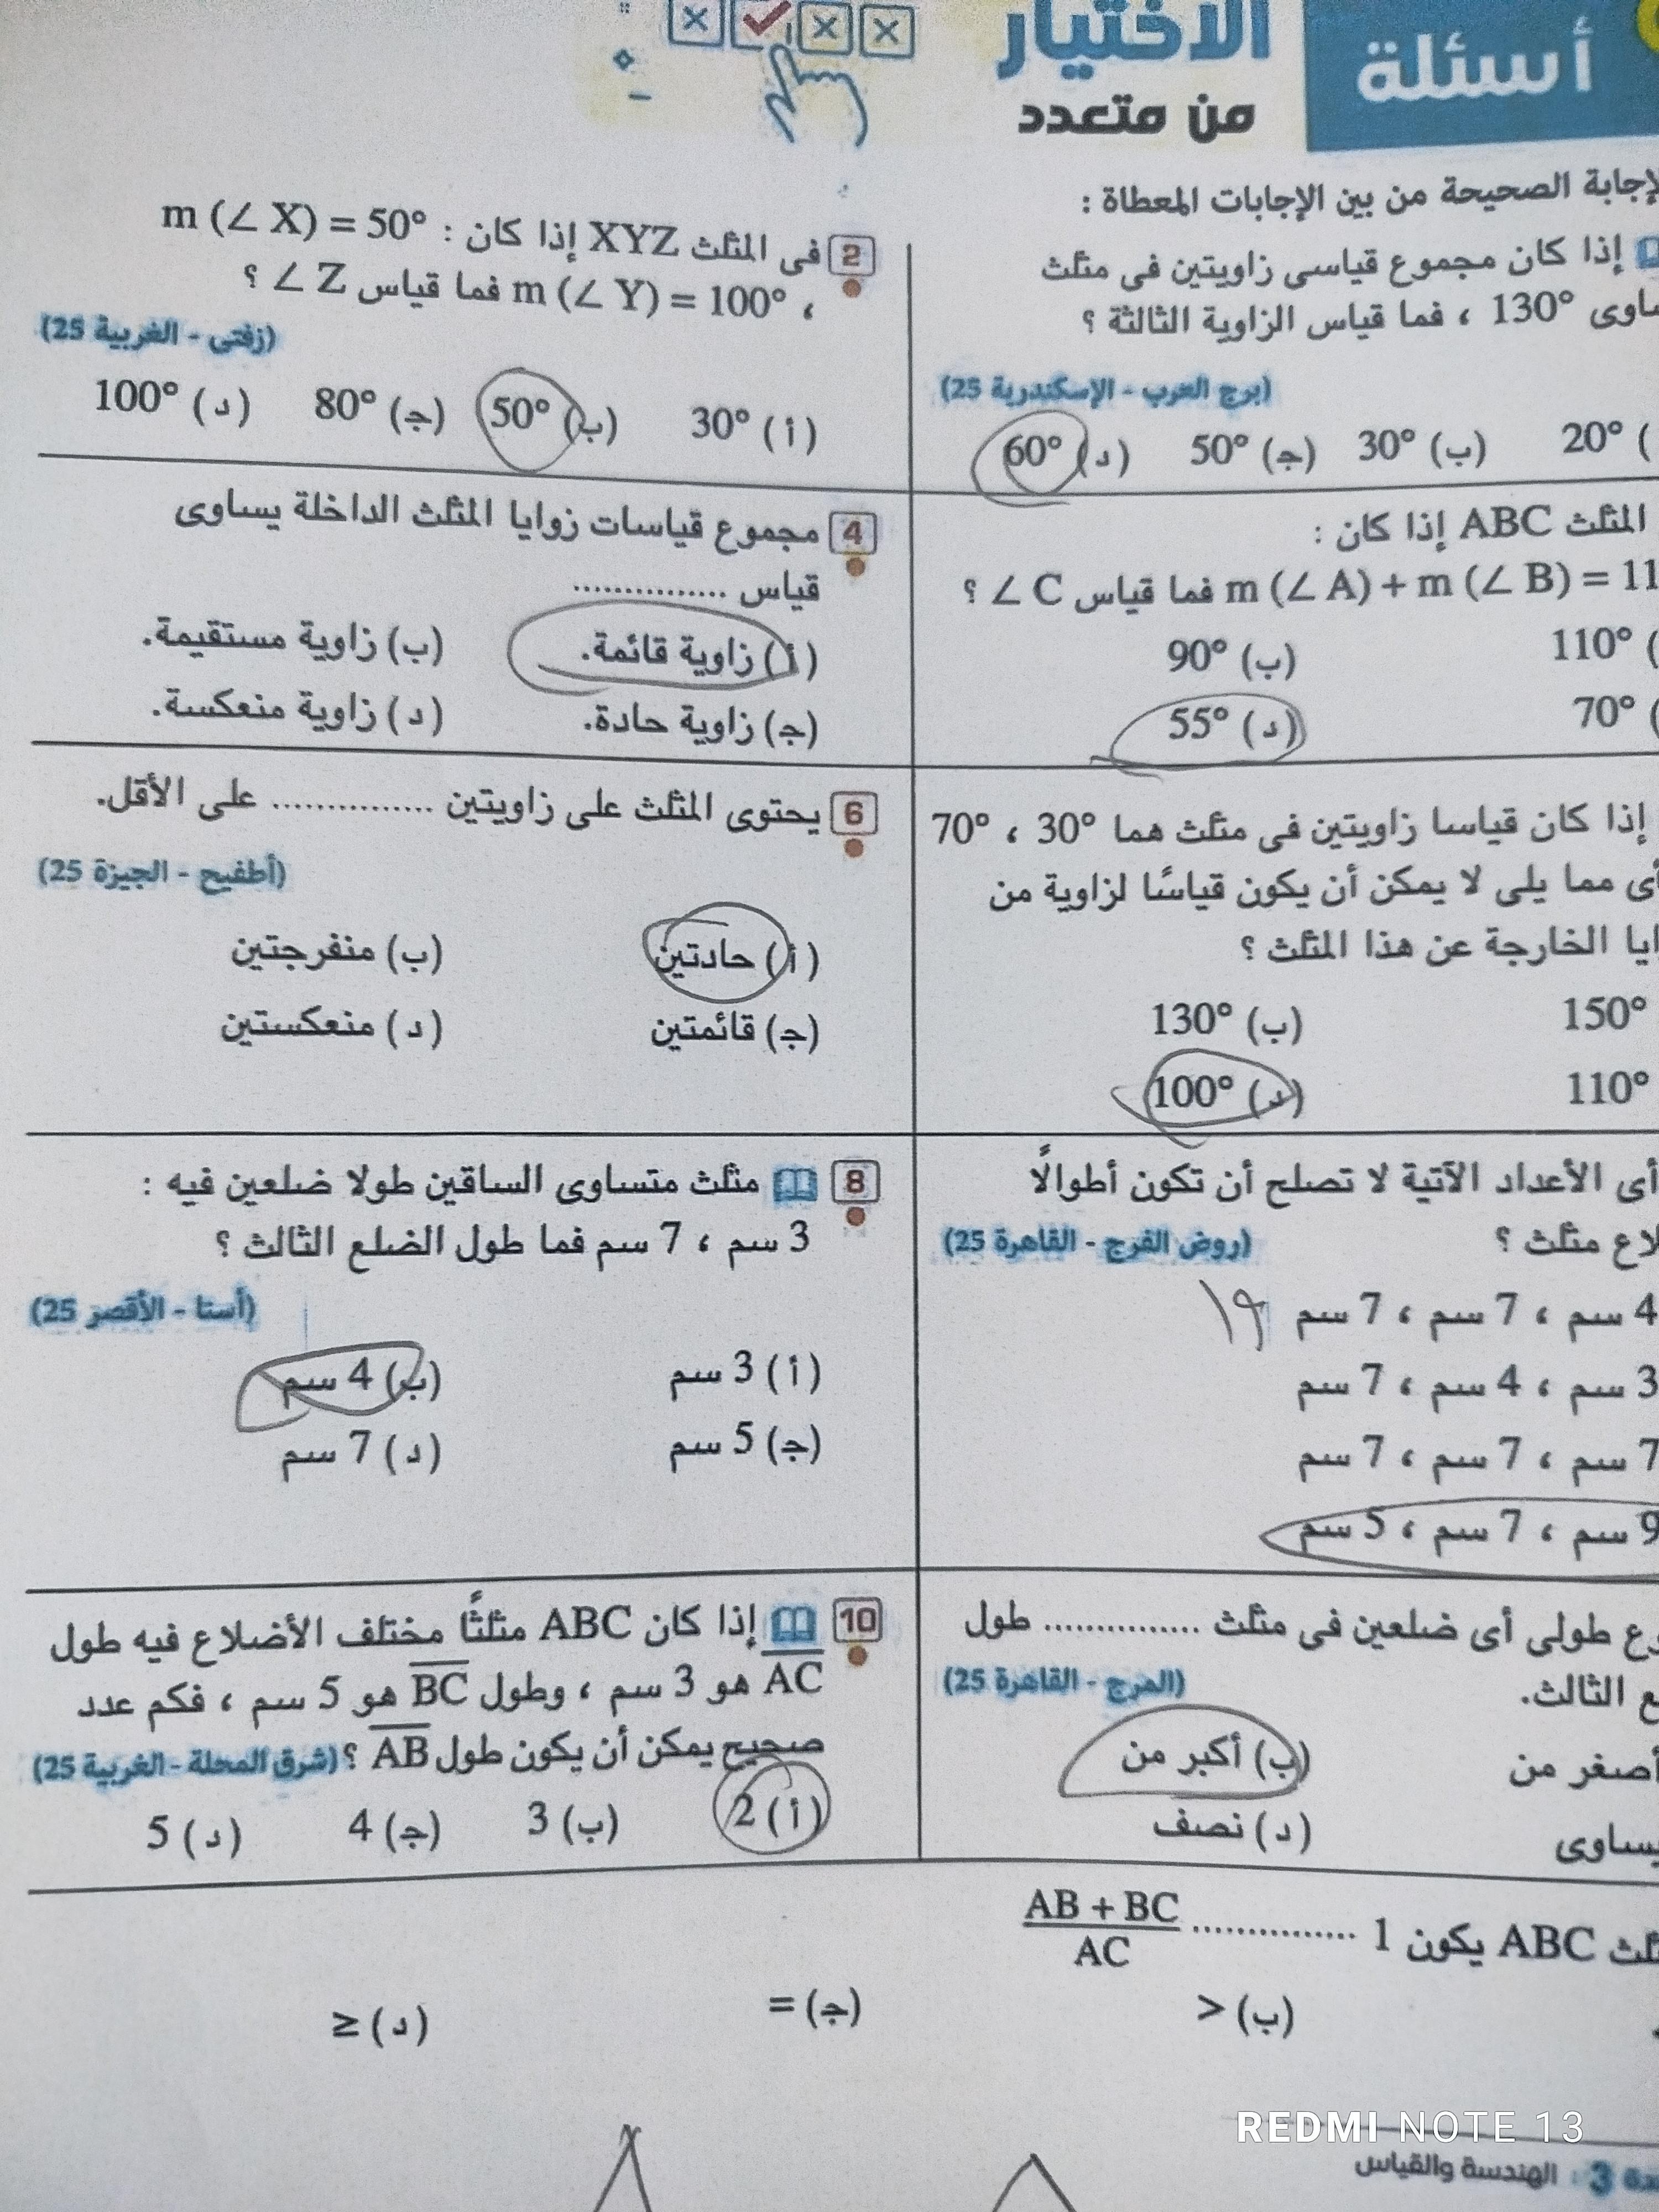 أسئلة
الاختيار
من متعدد
الإجابة الصحيحة من بين الإجابات المعطاة :
إذا كان مجموع قياسى زاويتين فى مثلث
130° ، فما قياس الزاوية الثالثة ؟
(برج العرب - الإسكندرية 25)
20° (ب) 30° (ج) 50° (د) 60°
2 فى المثلث XYZ إذا كان : m (∠ X) = 50°
، m (∠ Y) = 100° فما قياس Z ∠ ؟
(زفتى - الغربية 25)
(أ) 30° (ب) 50° (ج) 80° (د) 100°
المثلث ABC إذا كان :
m (∠ A) + m (∠ B) = 11 فما قياس C ∠ ؟
110° (ب) 90°
70° (د) 55°
4 مجموع قياسات زوايا المثلث الداخلة يساوى
قياس ...............
(أ) زاوية قائمة. (ب) زاوية مستقيمة.
(ج) زاوية حادة. (د) زاوية منعكسة.
إذا كان قياسا زاويتين فى مثلث هما 30° ، 70°
أى مما يلى لا يمكن أن يكون قياسًا لزاوية من
الخارجة عن هذا المثلث ؟
150° (ب) 130°
110° (د) 100°
6 يحتوى المثلث على زاويتين ............... على الأقل.
(أطفيح - الجيزة 25)
(أ) حادتين (ب) منفرجتين
(ج) قائمتين (د) منعكستين
أى الأعداد الآتية لا تصلح أن تكون أطوالًا
مثلث ؟ (روض الفرج - القاهرة 25)
4 سم ، 7 سم ، 7 سم
3 سم ، 4 سم ، 7 سم
7 سم ، 7 سم ، 7 سم
9 سم ، 7 سم ، 5 سم
8 مثلث متساوى الساقين طولا ضلعين فيه :
3 سم ، 7 سم فما طول الضلع الثالث ؟
(أسنا - الأقصر 25)
(أ) 3 سم (ب) 4 سم
(ج) 5 سم (د) 7 سم
طولى أى ضلعين فى مثلث ............... طول
الثالث. (المرج - القاهرة 25)
أصغر من (ب) أكبر من
يساوى (د) نصف
10 إذا كان ABC مثلثًا مختلف الأضلاع فيه طول
AC هو 3 سم ، وطول BC هو 5 سم ، فكم عدد
صحيح يمكن أن يكون طول AB ؟ (شرق المحلة - الغربية 25)
(أ) 2 (ب) 3 (ج) 4 (د) 5
ABC يكون 1 ............... AB + BC / AC
(ب) > (ج) = (د) ≥
3 : الهندسة والقياس
REDMI NOTE 13